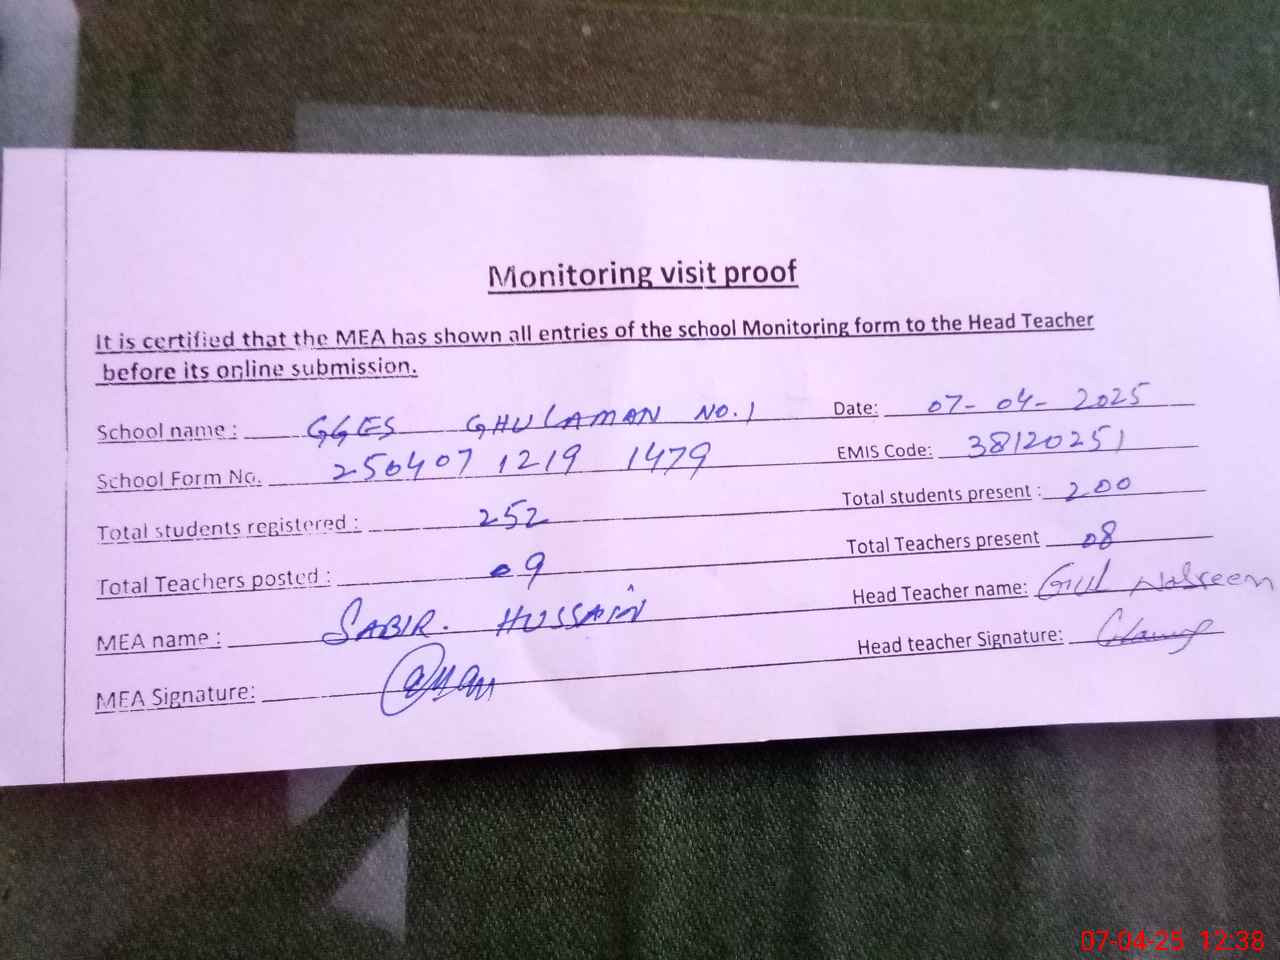 Monitoring visit proof
It is certified that the MEA has shown all entries of the school Monitoring form to the Head Teacher
before its online submission.
School name : GGES GHULAMAN NO.1 Date: 07-04-2025
School Form No. 250407 1219 1479 EMIS Code: 38120251
Total students registered : 252 Total students present : 200
Total Teachers posted : 09 Total Teachers present 08
MEA name : SABIR. HUSSAIN Head Teacher name: Gul Nasreen
MEA Signature: Head teacher Signature:
07-04-25 12:38